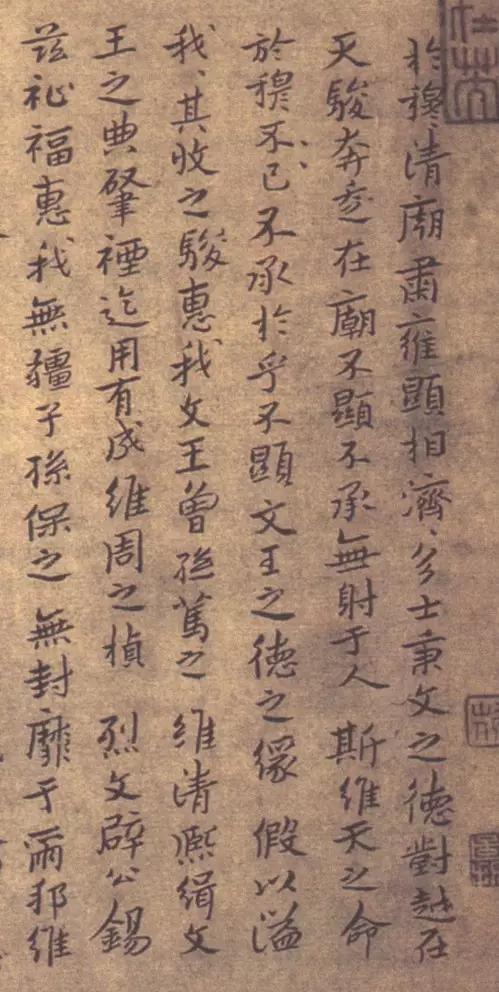 於穆〻清廟肅〻維顯相濟〻多士秉文之德對越在
天駿奔走在廟不顯不承無射于人 斯維天之命
於穆不已不承於乎不顯文王之德之緣 假以溢
我〻其收之駿惠我文王曾孫篤之 維清熙緝文
王之典肇禋迄用有成維周之楨 烈文辟公錫
茲祉福惠我無疆子孫保之 無封靡于爾邦維